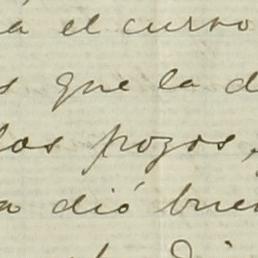 a el curso
s que la d
los pozos,
a dió buen